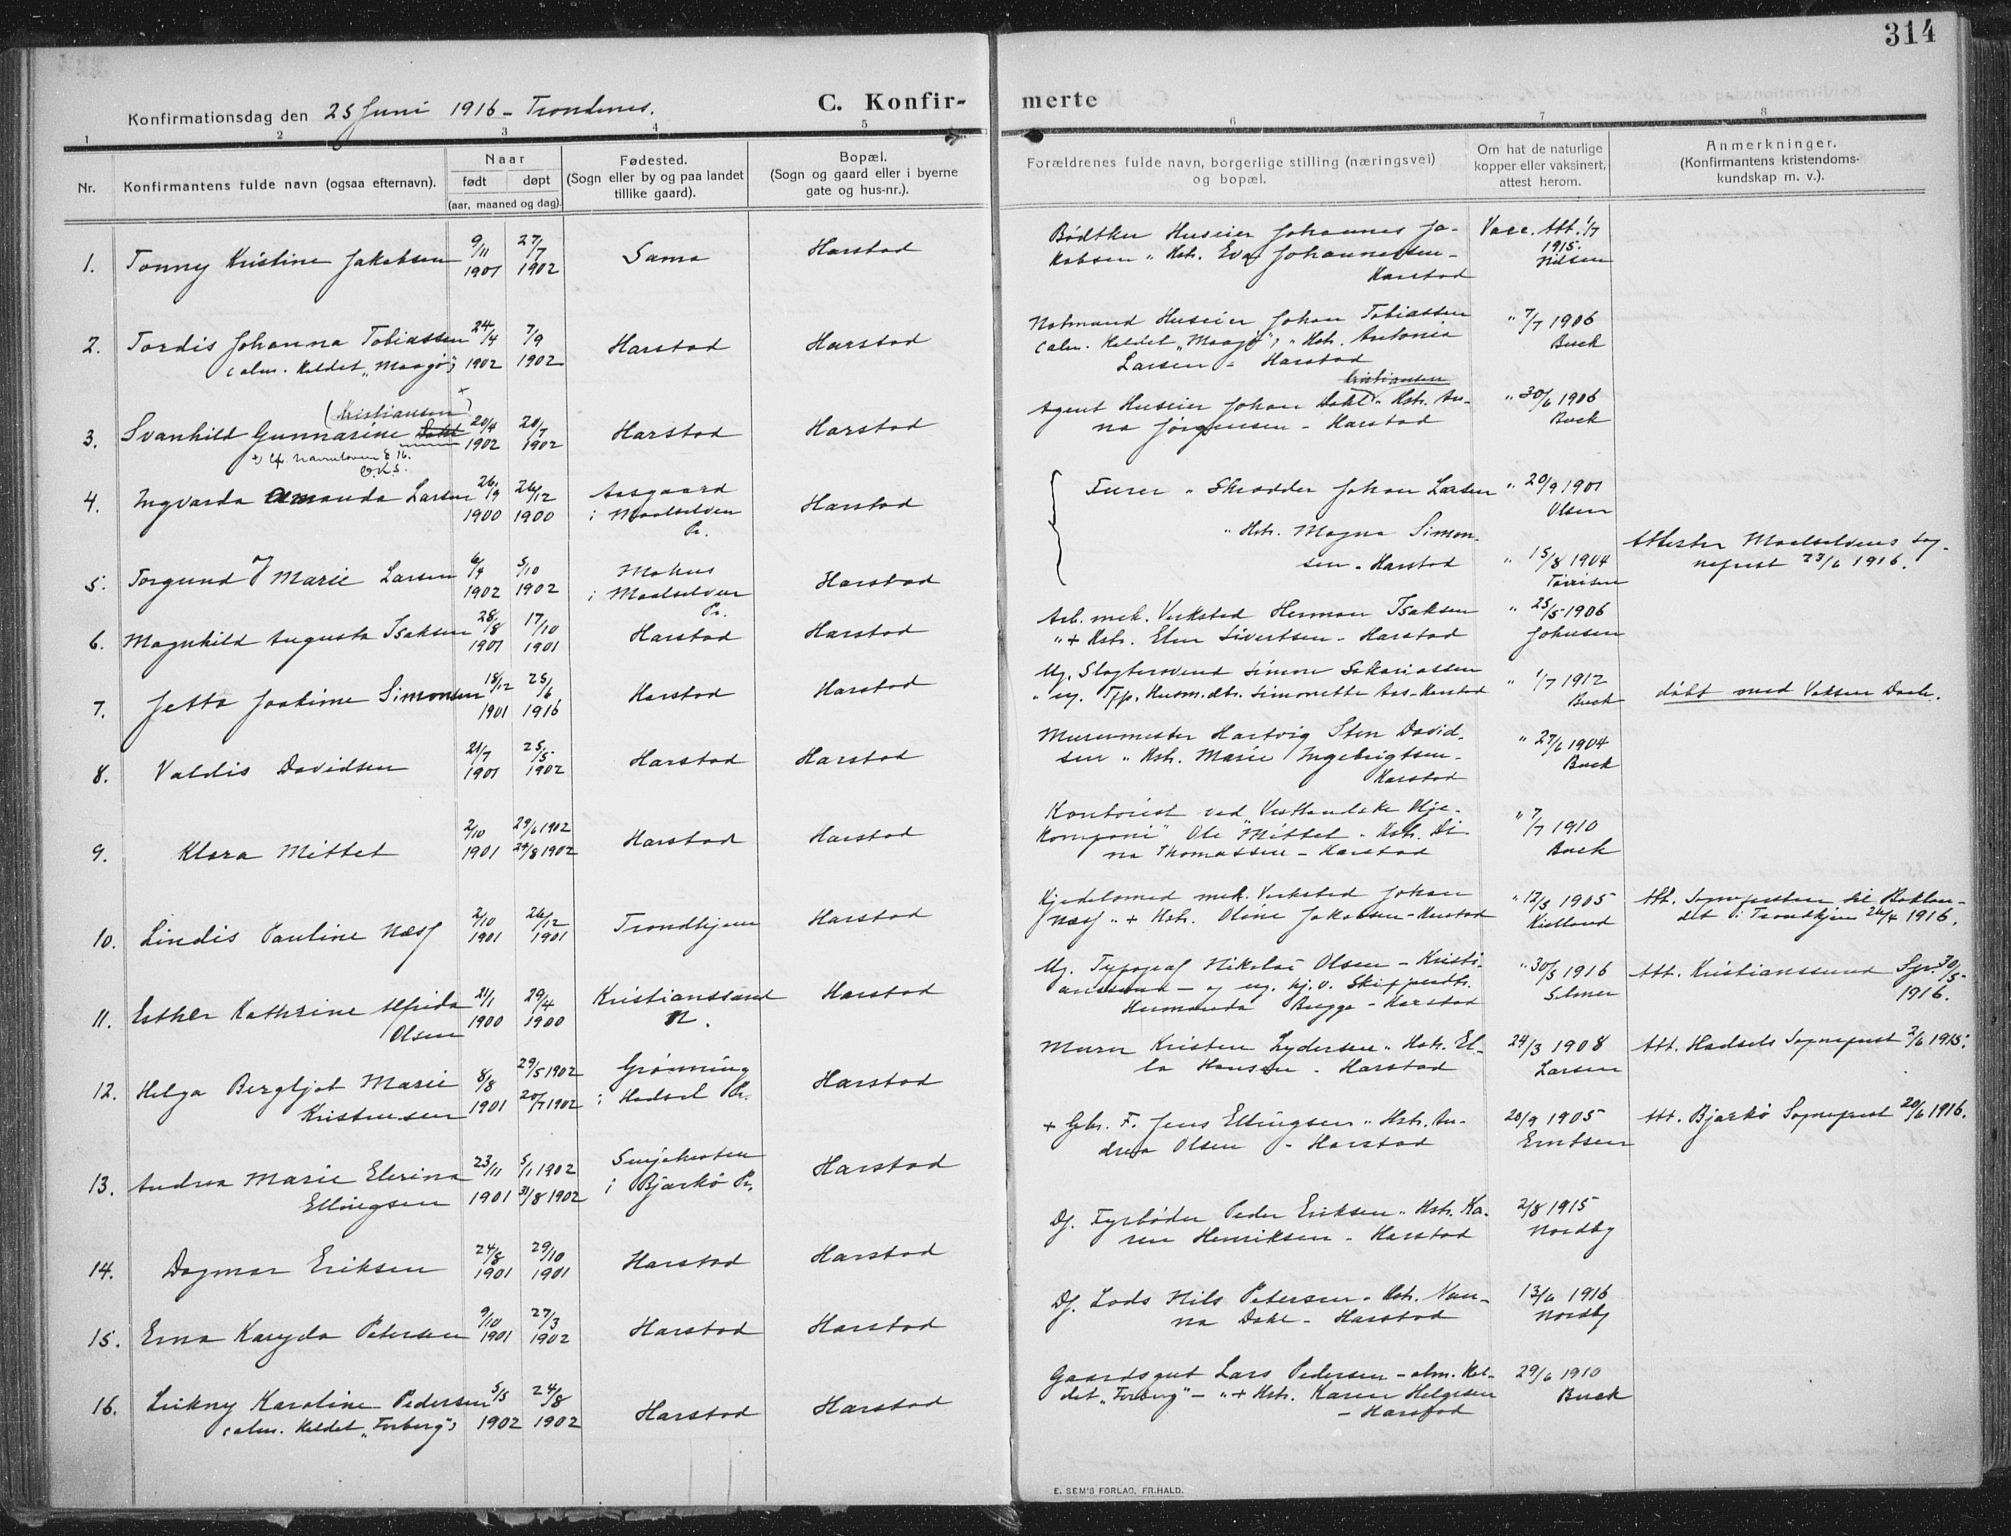 314
Konfirmationsdag den 25 Juni 1916 – Trondenes.
C. Konfir- merte
1 2 3 4 5 6 7 8
Nr.
Konfirmantens fulde navn (ogsaa efternavn).
Naar
født døpt
(aar, maaned og dag).
Fødested.
(Sogn eller by og paa landet
tillike gaard).
Bopæl.
(Sogn og gaard eller i byerne
gate og hus-nr.).
Forældrenes fulde navn, borgerlige stilling (næringsvei)
og bopæl.
Om hat de naturlige
kopper eller vaksinert,
attest herom.
Anmerkninger.
(Konfirmantens kristendoms-
kundskap m. v.).
1. Tonny Kristine Jakobsen 9/11 1901 27/7 1902 Sama Harstad
Bødtker Huseier Johannes Ja-
kobsen " Hstr. Eva Johannessen –
Harstad
Vacc. Att. 1/7
1915.
Nilsen
2. Tordis Johanna Tobiassen 24/4 1902 7/9 1902 Harstad Harstad
(alm. kaldet „Maagø")
Notmand Huseier Johan Tobiassen
(alm. kaldet „Maagø") " Hstr. Antonia
Larsen – Harstad
" 7/7 1906
Buck
3. Svanhild Gunnarine Dahl 20/4 1902 20/7 1902 Harstad Harstad
(Kristiansen)
+) Cf. Navneloven § 16.
O.K.S.
Kristiansen
Agent Huseier Johan Dahl " Hstr. An-
na Jørgensen – Harstad
" 30/6 1906
Buck
4. Ingvarda Amanda Larsen 26/9 1900 26/12 1900 Aasgaard
i Maalselven
Pr.
Harstad
Turer " Skrædder Johan Larsen
" Hstr. Magna Simon-
sen – Harstad
" 20/9 1901
Olsen
5. Torgund Marie Larsen 6/4 1902 5/10 1902 Mohus
i Maalselven
Pr.
Harstad
" 15/8 1904
Attester Maalselvens Sog-
neprest 23/6 1916.
6. Magnhild Augusta Isaksen 28/8 1901 17/10 1901 Harstad Harstad
Arb. mek. Verksted Herman Isaksen
" + Hstr. Elen Sivertsen – Harstad
" 25/5 1906
Johnsen
7. Jetta Joakime Simonsen 18/12 1901 25/6 1916 Harstad Harstad
Ug. Slagtersvend Simon Sakariassen
" ug. Tjp. Husm.dtr. Simonette Aas. Harstad
" 1/7 1912
Buck
døbt med Voksen Daab.
8. Valdis Davidsen 21/7 1901 25/5 1902 Harstad Harstad
Murermester Hartvig Sten David-
sen " Hstr. Marie Ingebrigtsen –
Harstad
" 27/6 1904
Buck
9. Klara Mittet 2/10 1901 29/6 1902
24/8 1902 Harstad Harstad
Kontorist ved „Vestlandske Olje-
kompani" Ole Mittet – Hstr. Di-
na Thomassen – Harstad
" 7/7 1910
Buck
10. Lindis Pauline Næss 2/10 1901 26/12 1901 Trondhjem Harstad
Kjedelsmed mek. Verksted Johan
Næss " + Hstr. Oline Jakobsen – Harstad
" 12/5 1905
Kielland
Att. Sognepresten til Baklan-
det i Trondhjem 26/4 1916.
11. Esther Kathrine Alfrida
Olsen 21/1 1900 29/4 1900 Kristianssund
N.
Harstad
Ug. Typograf Nikolai Olsen – Kristi-
anssund – og ug. hj.v. Skipperdtr.
Hermanda Brygge – Harstad
" 30/5 1916
Att. Kristianssund Spr. 30/5
1916.
12. Helga Bergljot Marie
Kristensen 8/8 1901 29/5 1902
20/7 1902 Grønning
i Hadsel Pr.
Harstad
Murer Kristen Lydersen " Hstr. El-
la Hansen – Harstad
24/3 1908
Larsen
Att. Hadsels Sogneprest 2/6 1915.
13. Andrea Marie Elerina
Ellingsen 23/11 1901 5/1 1902
31/8 1902
i Bjarkø Pr.
Harstad
+ Gbr. F. Jens Ellingsen " Hstr. An-
drea Olsen – Harstad
20/9 1905
Erntsen
Att. Bjarkø Sogneprest 20/6 1916.
14. Dagmar Eriksen 24/8 1901 29/10 1901 Harstad Harstad
Df. Fyrbøder Peder Eriksen " Hstr. Ka-
ren Henriksen – Harstad
2/8 1915
Nordby
15. Erna Karyda Petersen 9/10 1901 27/3 1902 Harstad Harstad
Df. Lods Nils Petersen – Hstr. Nan-
na Dahl – Harstad
13/6 1916
Nordby
16. Leikny Karoline Pedersen 5/5 1902 24/8 1902 Harstad Harstad
(alm. kaldet „Forberg")
Gaardsgut Lars Pedersen – alm. kal-
det „Forberg" – " + Hstr. Karen Helgesen
– Harstad
29/6 1910
Buck
E. SEM'S FORLAG, FR.HALD.